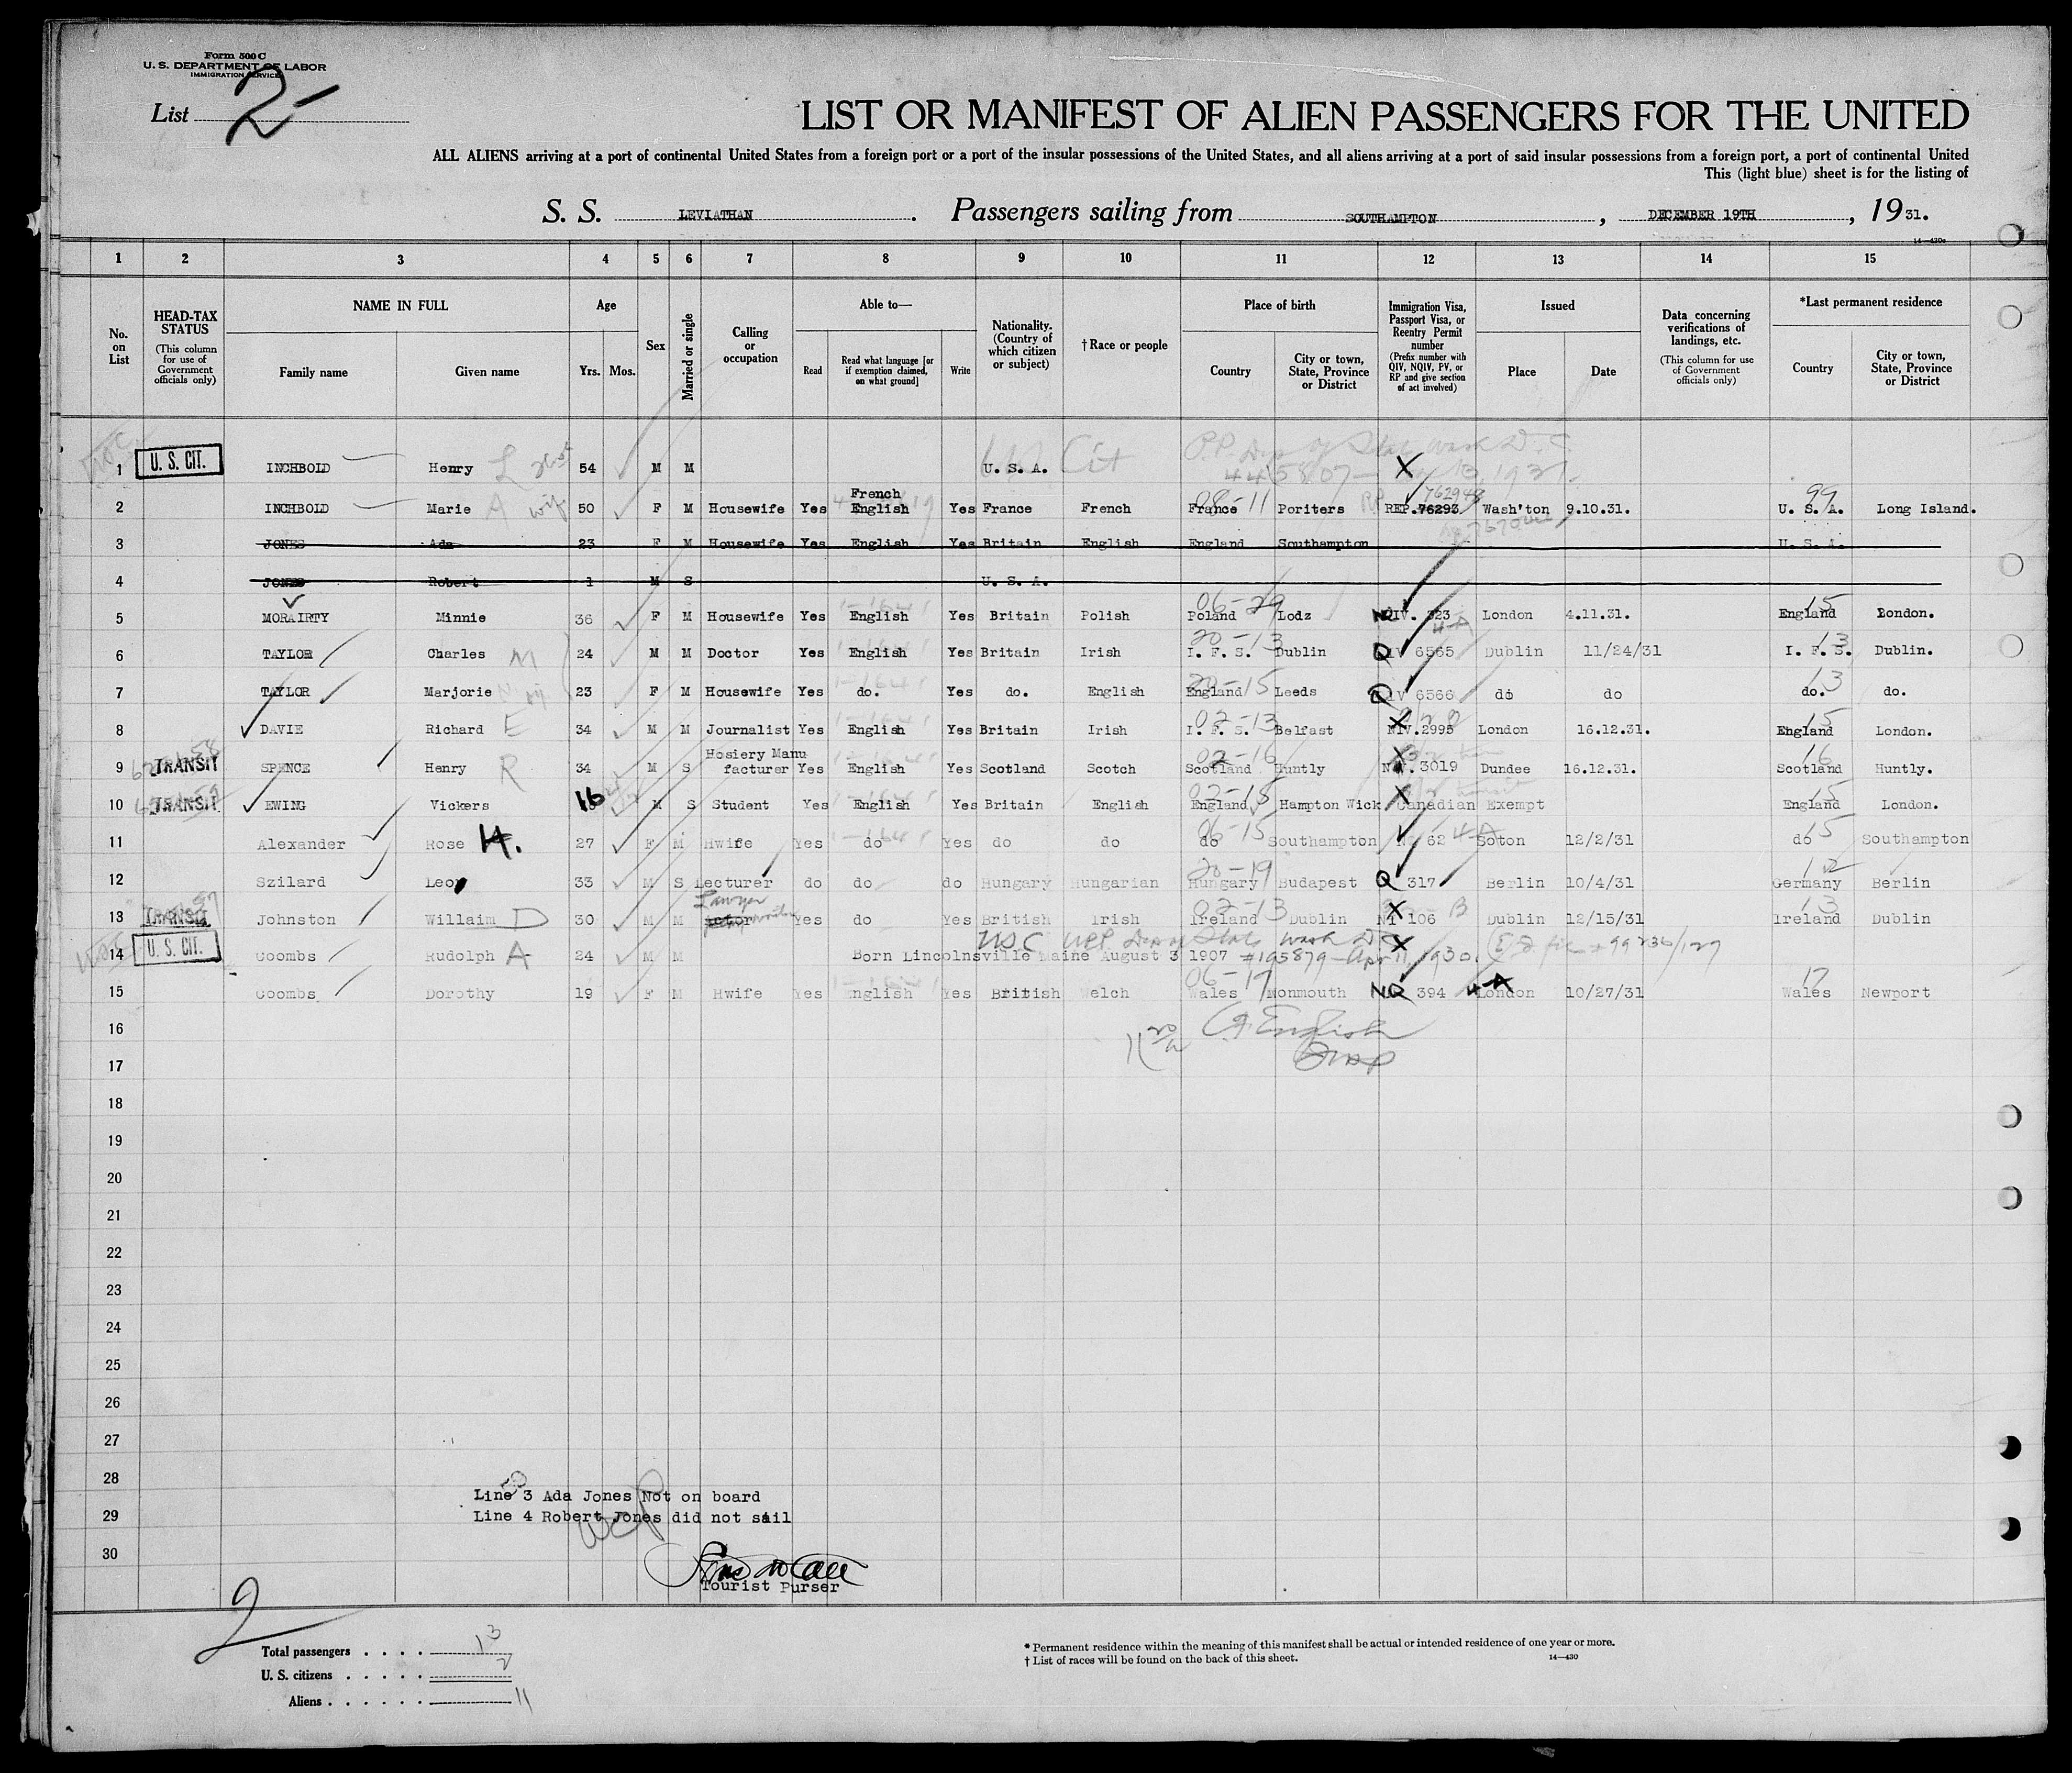 Form 500 C
U. S. DEPARTMENT OF LABOR
IMMIGRATION SERVICE
List 2
LIST OR MANIFEST OF ALIEN PASSENGERS FOR THE UNITED
ALL ALIENS arriving at a port of continental United States from a foreign port or a port of the insular possessions of the United States, and all aliens arriving at a port of said insular possessions from a foreign port, a port of continental United
This (light blue) sheet is for the listing of
S. S. LEVIATHAN. Passengers sailing from SOUTHAMPTON, DECEMBER 19TH, 1931.
14—430c
1 2 3 4 5 6 7 8 9 10 11 12 13 14 15
No. on List
HEAD-TAX STATUS (This column for use of Government officials only)
NAME IN FULL Family name Given name
Age Yrs. Mos.
Sex
Married or single
Calling or occupation
Able to— Read Read what language [or if exemption claimed, on what ground] Write
Nationality. (Country of which citizen or subject)
†Race or people
Place of birth Country City or town, State, Province or District
Immigration Visa, Passport Visa, or Reentry Permit number (Prefix number with QIV, NQIV, PV, or RP and give section of act involved)
Issued Place Date
Data concerning verifications of landings, etc. (This column for use of Government officials only)
*Last permanent residence Country City or town, State, Province or District
1 U. S. CIT. INCHBOLD Henry L 54 M M U. S. A. Cit X
2 INCHBOLD Marie A wife 50 F M Housewife Yes French English Yes France French France 08-11 Poriters REP. 76293 762948 Wash'ton 9.10.31. U. S. A. 99 Long Island.
3 JONES Ada 23 F M Housewife Yes English Yes Britain English England Southampton U. S. A.
4 JONES Robert 1 M S U. S. A.
5 MORAIRTY Minnie 36 F M Housewife Yes English Yes Britain Polish Poland 06-29 Lodz NQIV. 323 4-A London 4.11.31. England 15 London.
6 TAYLOR Charles M 24 M M Doctor Yes English Yes Britain Irish I. F. S. 20-13 Dublin QIV 6565 Dublin 11/24/31 I. F. S. 13 Dublin.
7 TAYLOR Marjorie 23 F M Housewife Yes do. Yes do. English England 20-15 Leeds QIV 6566 do do do. 13 do.
8 DAVIE Richard E 34 M M Journalist Yes English Yes Britain Irish I. F. S. 02-13 Belfast X NIV. 2995 London 16.12.31. England 15 London.
9 TRANSIT SPENCE Henry R 34 M S Hosiery Manufacturer Yes English Yes Scotland Scotch Scotland 02-16 Huntly X 3019 Dundee 16.12.31. Scotland 16 Huntly.
10 TRANSIT EWING Vickers 16 M S Student Yes English Yes Britain English England 02-15 Hampton Wick X Canadian Exempt England 15 London.
11 Alexander Rose H. 27 F M Hwife Yes do Yes do do do 06-15 Southampton 62 4-A Soton 12/2/31 do 15 Southampton
12 Szilard Leo 33 M S Lecturer do do do Hungary Hungarian Hungary 20-19 Budapest Q 317 Berlin 10/4/31 Germany 12 Berlin
13 TRANSIT Johnston Willaim D 30 M M Lawyer Yes do Yes British Irish Ireland 02-13 Dublin X 106 Dublin 12/15/31 Ireland 13 Dublin
14 U. S. CIT. Coombs Rudolph A 24 M M Born Lincolnsville Maine August 3 1907 USC #195879 X
15 Coombs Dorothy 19 F M Hwife Yes English Yes British Welch Wales 06-17 Monmouth NQ 394 4-A London 10/27/31 Wales 17 Newport
16
17
18
19
20
21
22
23
24
25
26
27
28
Line 3 Ada Jones Not on board
29 Line 4 Robert Jones did not sail
30
Tourist Purser
2
Total passengers . . . . 13
U. S. citizens . . . . . 2
Aliens . . . . . . 11
* Permanent residence within the meaning of this manifest shall be actual or intended residence of one year or more.
† List of races will be found on the back of this sheet.
14—430